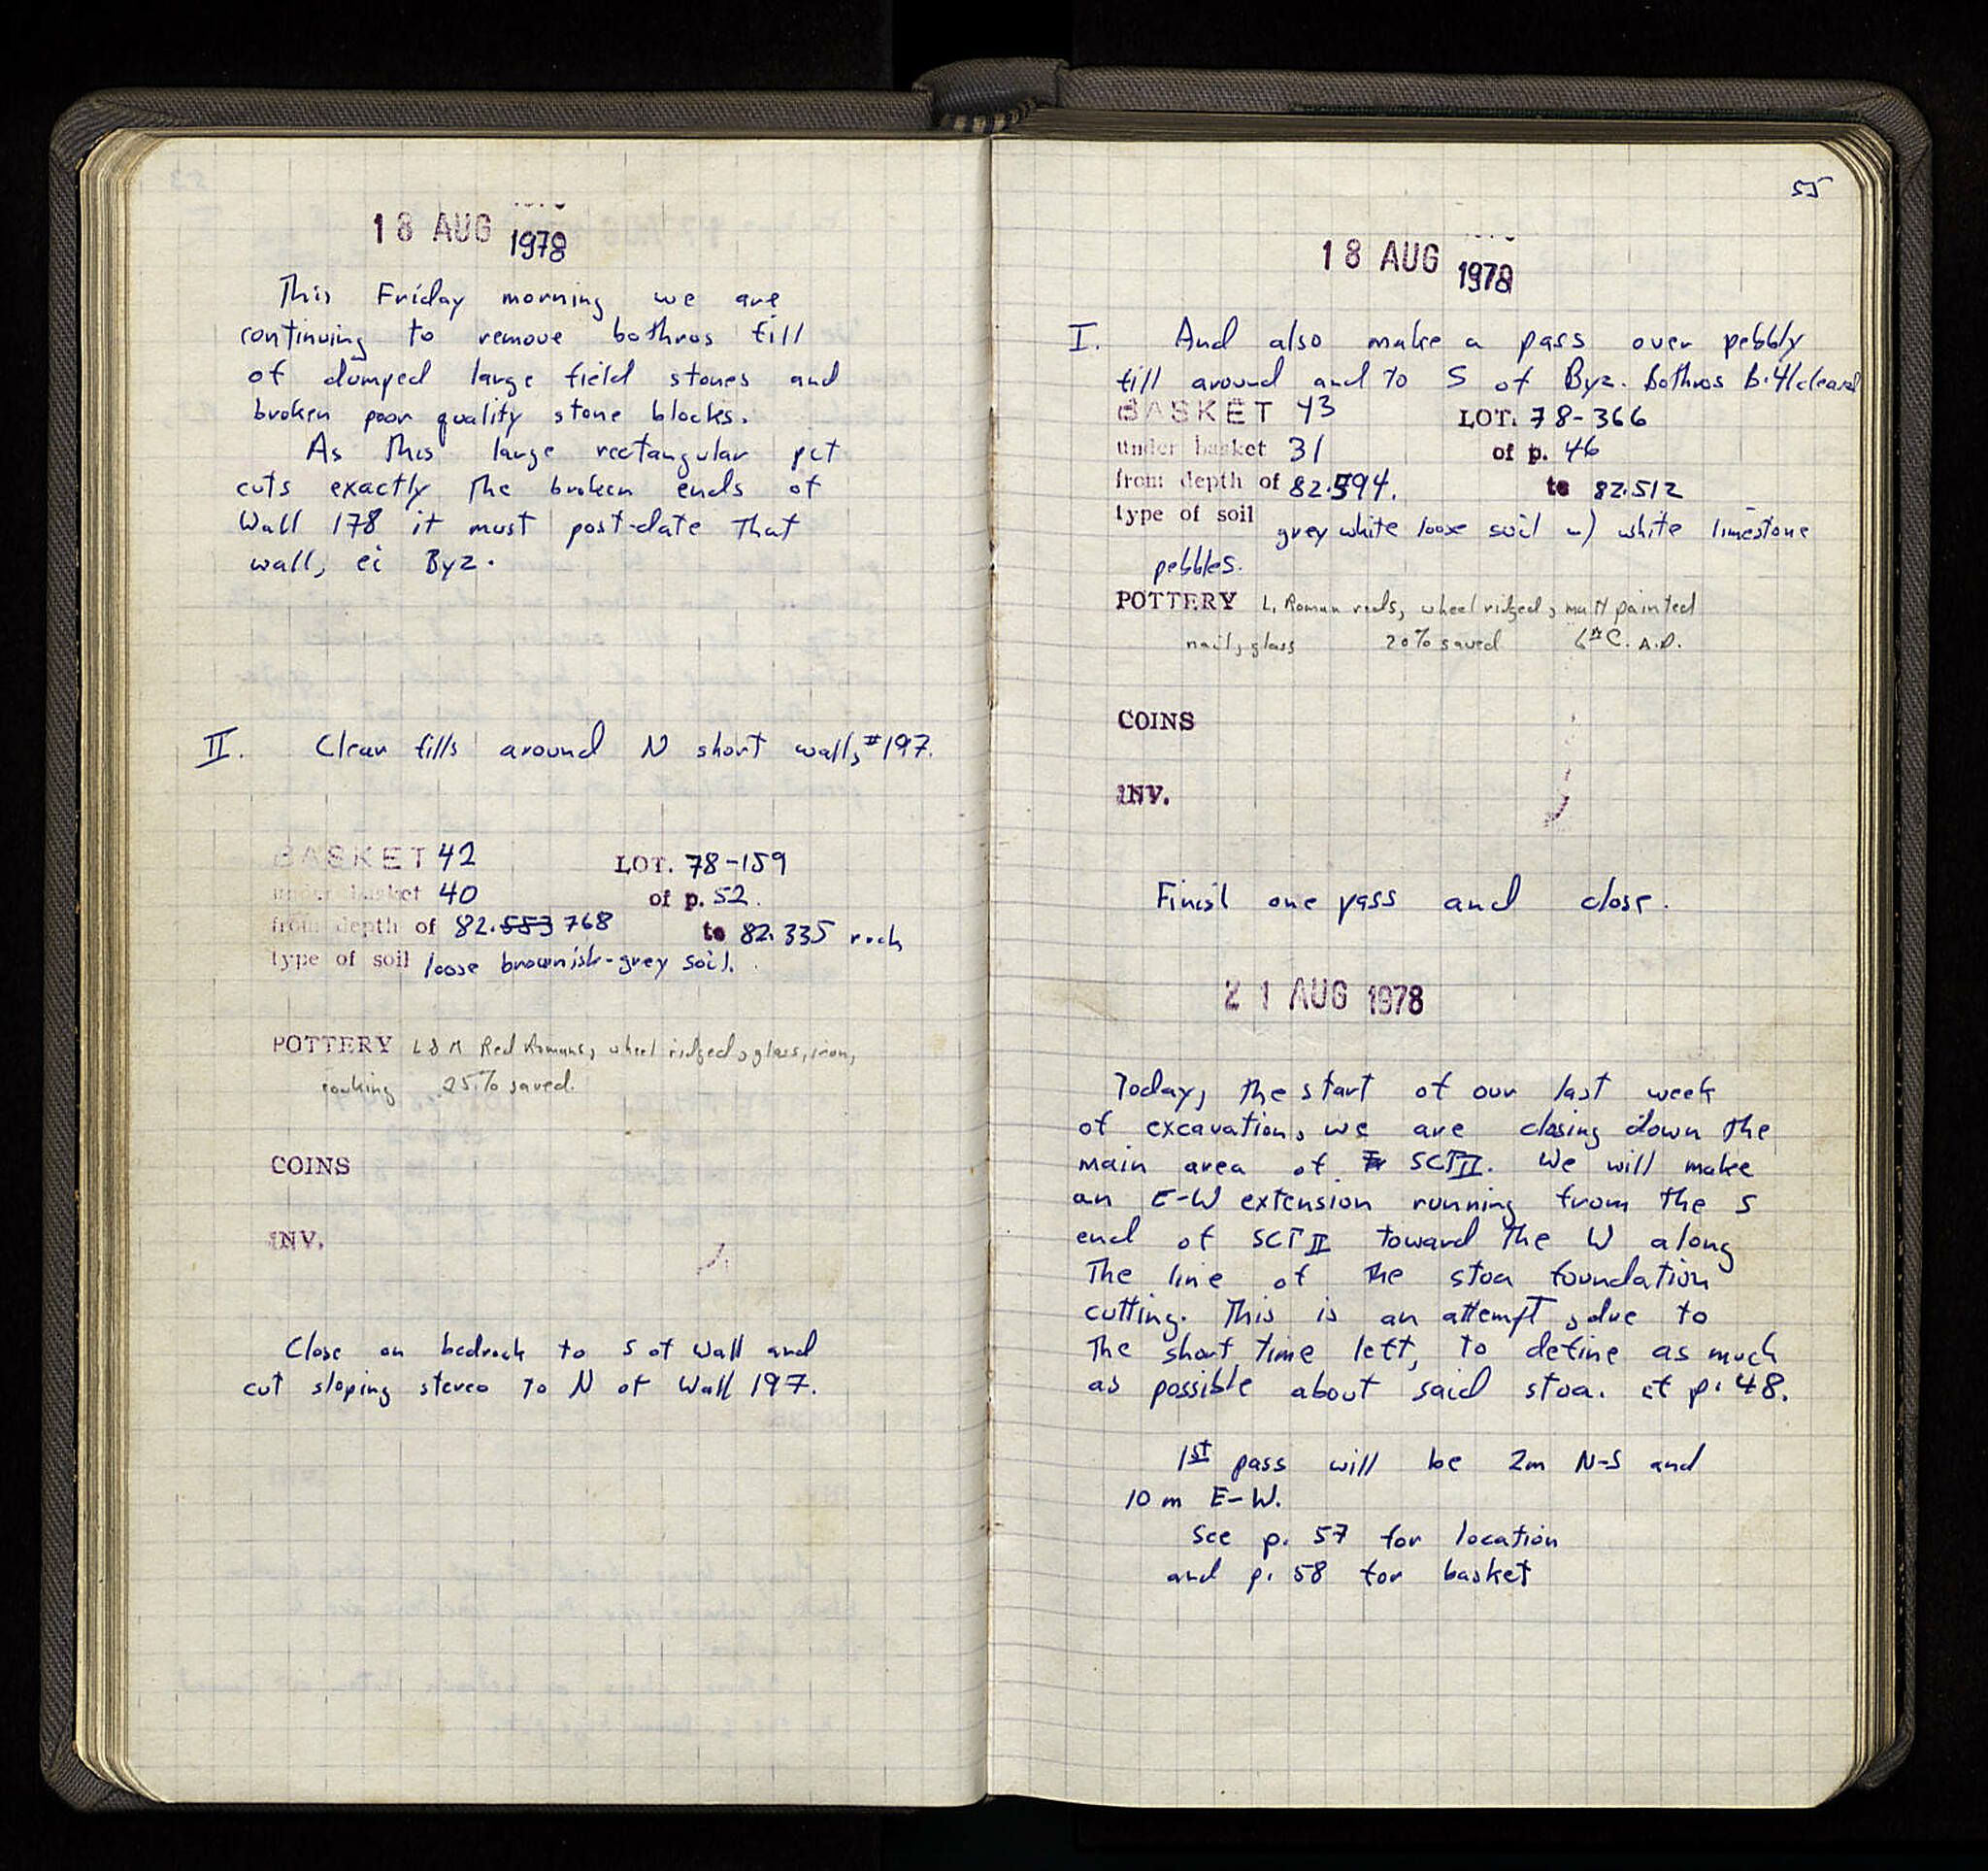 18 AUG 1978
This Friday morning we are
continuing to remove bothros fill
of dumped large field stones and
broken poor quality stone blocks.
As this large rectangular pit
cuts exactly the broken ends of
Wall 178 it must post-date that
wall, ei Byz.
II. Clean fills around N short wall, #197.
BASKET 42 LOT. 78-159
under basket 40 of p. 52.
from depth of 82.553 768 to 82.335 rock
type of soil loose brownish-grey soil.
POTTERY L & M Red Romans, wheel ridged, glass, iron,
cooking 25% saved.
COINS
INV.
Close on bedrock to S of Wall and
cut sloping stereo to N of Wall 197.
55
18 AUG 1978
I. And also make a pass over pebbly
fill around and to S of Byz. bothros b.41 cleared
BASKET 43 LOT. 78-366
under basket 31 of p. 46
from depth of 82.594. to 82.512
type of soil grey white loose soil w) white limestone
pebbles.
POTTERY L. Roman reds, wheel ridged, matt painted
nail, glass 20% saved 6th C. A.D.
COINS
INV.
Finish one pass and close.
21 AUG 1978
Today, the start of our last week
of excavation, we are closing down the
main area of SCT II. We will make
an E-W extension running from the S
end of SCT II toward the W along
the line of the stoa foundation
cutting. This is an attempt, due to
the short time left, to define as much
as possible about said stoa. cf p. 48.
1st pass will be 2m N-S and
10 m E-W.
see p. 57 for location
and p. 58 for basket